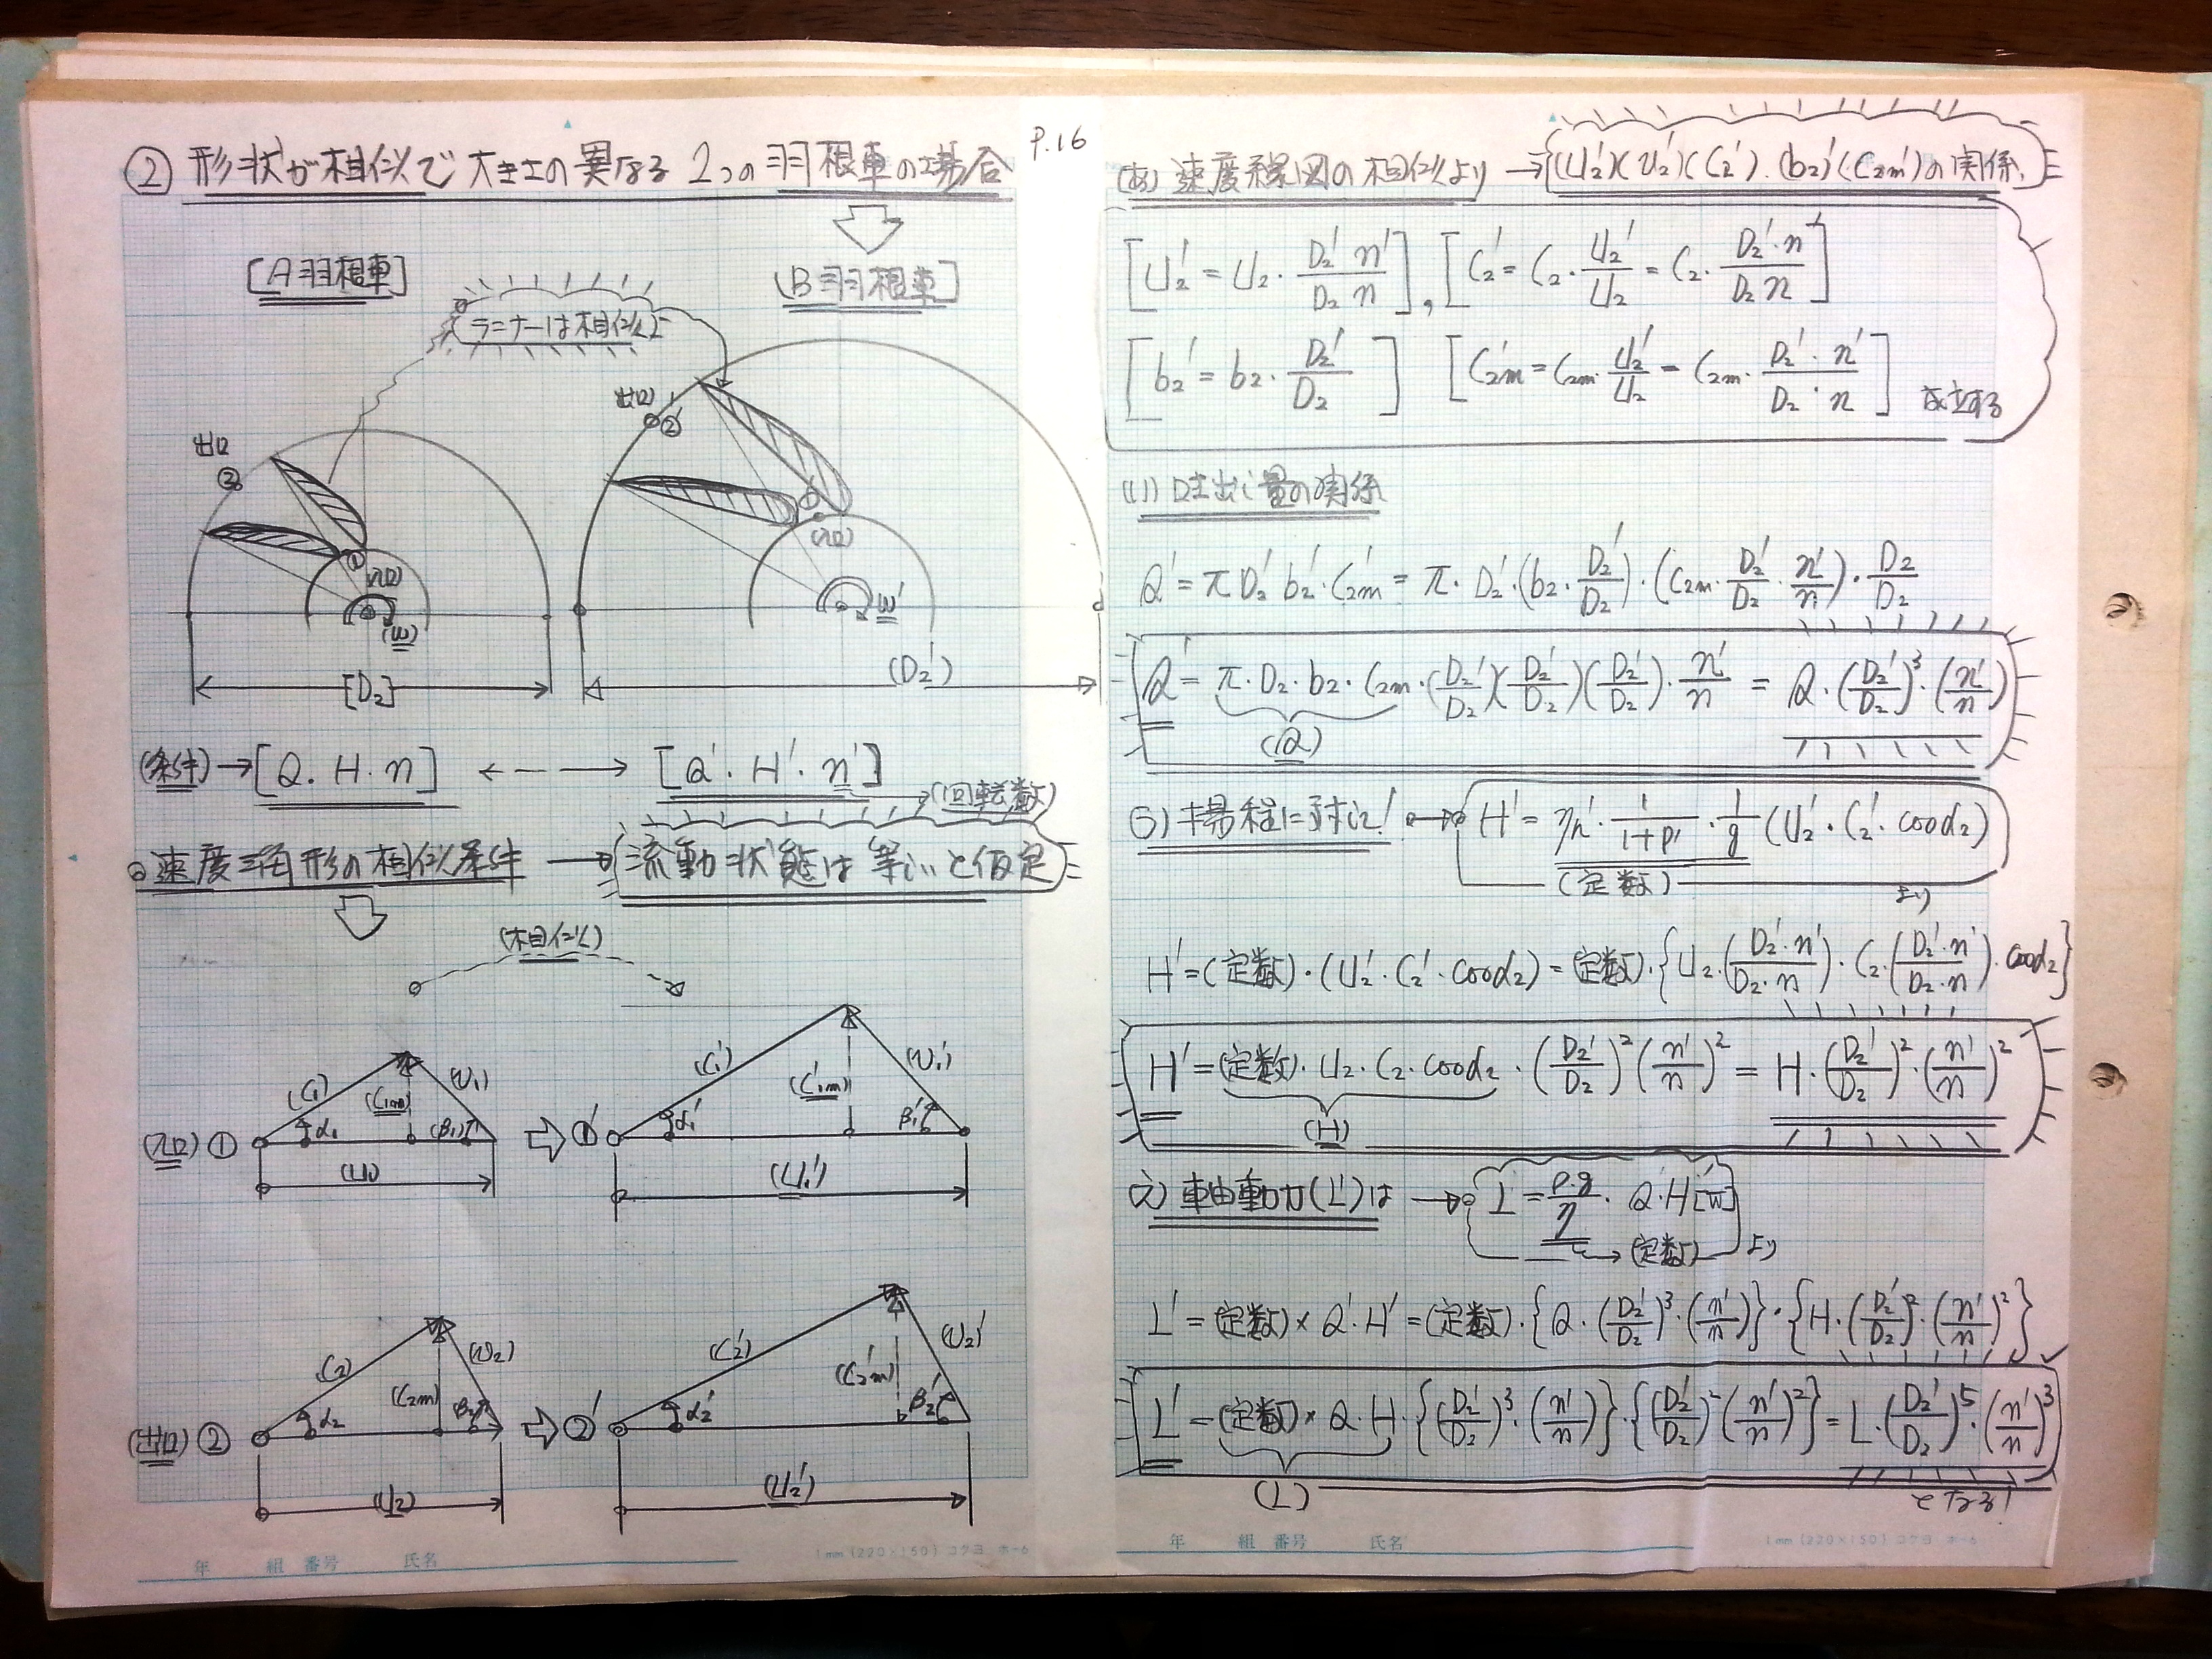 P.16
② 形状が相似で大きさの異なる2つの羽根車の場合
[A羽根車]
(B羽根車]
ランナーは相似
出口
②
①
(入口)
(ω)
[D₂]
出口
②'
①'
(入口)
ω'
(D₂')
(条件)→[Q.H.n] ←--→ [Q'.H'.n']
→(回転数)
○速度三角形の相似条件 → 流動状態は等しいと仮定
(相似)
(入口) ①
(C₁)
(C₁m)
(W₁)
α₁
(β₁)
(U₁)
①'
(C₁')
(C₁'m)
(W₁')
α₁'
β₁'
(U₁')
(出口) ②
(C₂)
(C₂m)
(W₂)
α₂
β₂
(U₂)
②'
(C₂')
(C₂'m)
(W₂)'
α₂'
β₂'
(U₂')
(あ) 速度線図の相似より → (U₂')(W₂')(C₂').(b₂)'(C₂m')の関係
[U₂' = U₂・D₂' n'/D₂ n], [C₂' = C₂・U₂'/U₂ = C₂・D₂'・n'/D₂ n]
[b₂' = b₂・D₂'/D₂] [C₂'m = C₂m・U₂'/U₂ = C₂m・D₂'・n'/D₂・n] 成立する
(い) 吐出し量の関係
Q' = π D₂' b₂'・C₂'m = π・D₂'・(b₂・D₂'/D₂)・(C₂m・D₂'/D₂・n'/n)・D₂/D₂
Q' = π・D₂・b₂・C₂m・(D₂'/D₂)(D₂'/D₂)(D₂'/D₂)・n'/n = Q・(D₂'/D₂)³・(n'/n)
(Q)
う) 揚程に対し! → H' = ηh'・1/1+P'・1/g (U₂'・C₂'・cosα₂)
(定数)
より
H' = (定数)・(U₂'・C₂'・cosα₂) = (定数)・{U₂・(D₂'・n'/D₂・n)・C₂・(D₂'・n'/D₂・n)・cosα₂}
H' = (定数)・U₂・C₂・cosα₂・(D₂'/D₂)²(n'/n)² = H・(D₂'/D₂)²・(n'/n)²
(H)
え) 軸動力(L')は → L = ρ.g/η・Q・H[W]
→ (定数) より
L' = (定数)×Q'・H' = (定数)・{Q・(D₂'/D₂)³・(n'/n)}・{H・(D₂'/D₂)²・(n'/n)²}
L' = (定数)×Q・H・{(D₂'/D₂)³・(n'/n)}・{(D₂'/D₂)²(n'/n)²} = L・(D₂'/D₂)⁵・(n'/n)³
(L)
となる!
年 組 番号 氏名
1mm (220×150) コクヨ ホ-6
年 組 番号 氏名
1mm (220×150) コクヨ ホ-6